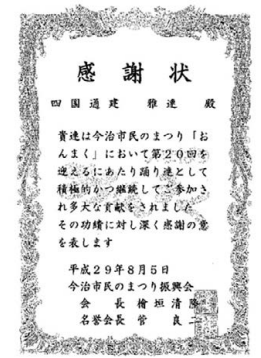 感謝状
四国通建 雅連 殿
貴連は今治市民のまつり「お
んまく」において第20回を
迎えるにあたり踊り連として
積極的かつ継続してご参加さ
れ多大な貢献をされました
その功績に対し深く感謝の意
を表します
平成29年8月5日
今治市民のまつり振興会
会長 檜垣清隆
名誉会長 菅良二